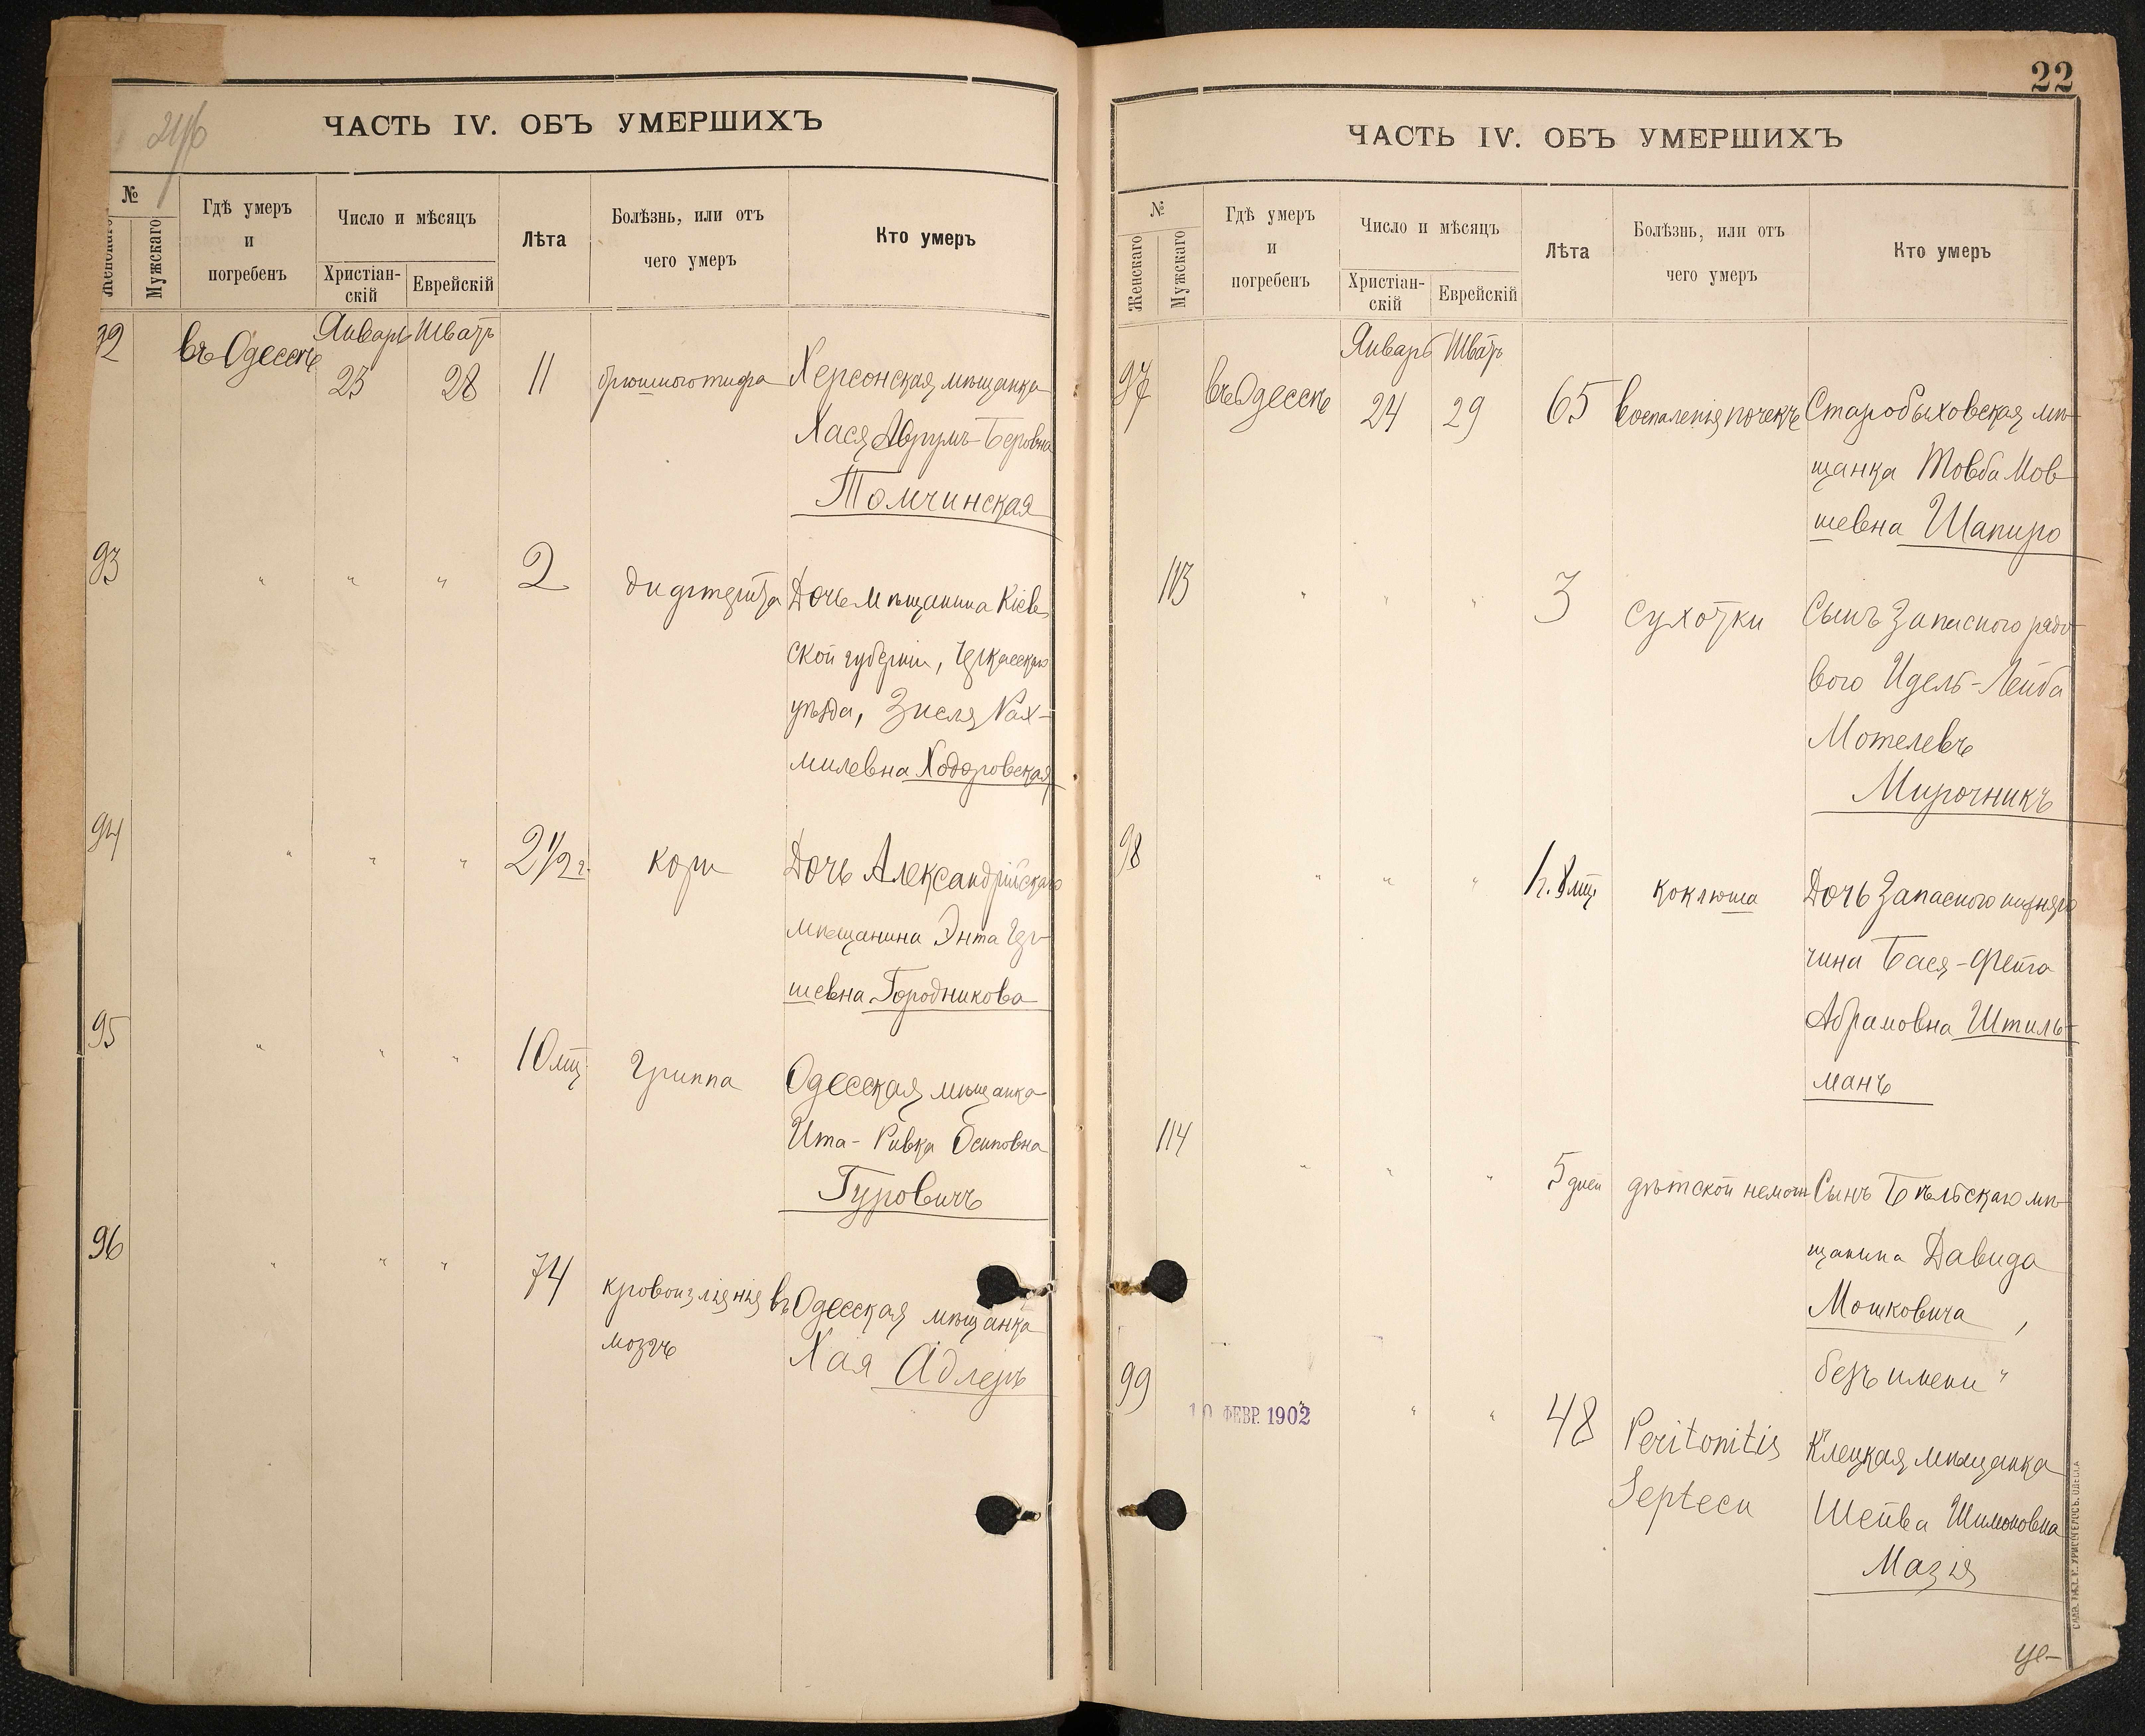 21/б
ЧАСТЬ IV. ОБЪ УМЕРШИХЪ
№
Женскаго
Мужскаго
Гдѣ умеръ
и
погребенъ
Число и мѣсяцъ
Христіан-
скій
Еврейскій
Лѣта
Болѣзнь, или отъ
чего умеръ
Кто умеръ
92 въ Одессѣ Январь Шватъ
23 28 11 брюшного тифа Херсонская мѣщанка
Хася Аврумъ-Беровна
Томчинская
93 " " " 2 дифтерита Дочь мѣщанина Кіев
ской губерніи, Черкасскаго
уѣзда, Зисля Рах-
милевна Ходоровская
94 " " " 2 1/2 г. кори Дочь Александрійскаго
мѣщанина Энта Гер-
шевна Городникова
95 " " " 10 мц гриппа Одесская мѣщанка
Ита-Ривка Осиповна
Гуровичъ
96 " " " 74 кровоизліянія въ Одесская мѣщанка
мозгъ Хая Адлеръ
22
ЧАСТЬ IV. ОБЪ УМЕРШИХЪ
№
Женскаго
Мужскаго
Гдѣ умеръ
и
погребенъ
Число и мѣсяцъ
Христіан-
скій
Еврейскій
Лѣта
Болѣзнь, или отъ
чего умеръ
Кто умеръ
Январь Шватъ
97 въ Одессѣ 24 29 65 воспаленія почекъ Старобыховская мѣ-
щанка Товба Мов
шевна Шапиро
113 " " " 3 сухотки Сынъ Запасного рядо
вого Идель-Лейба
Мотелевъ
Мирочникъ
98 " " " 1 г. 8 мц коклюша Дочь Запасного нижняго
чина Бася-Фейга
Абрамовна Штиль-
манъ
114 " " " 5 дней дѣтской немочи Сынъ Бѣльскаго мѣ-
щанина Давида
Мошковича,
безъ имени"
99 10 ФЕВР. 1902 " " 48 Peritonitis Клецкая мѣщанка
Septecu Шейва Шимоновна
Мазія